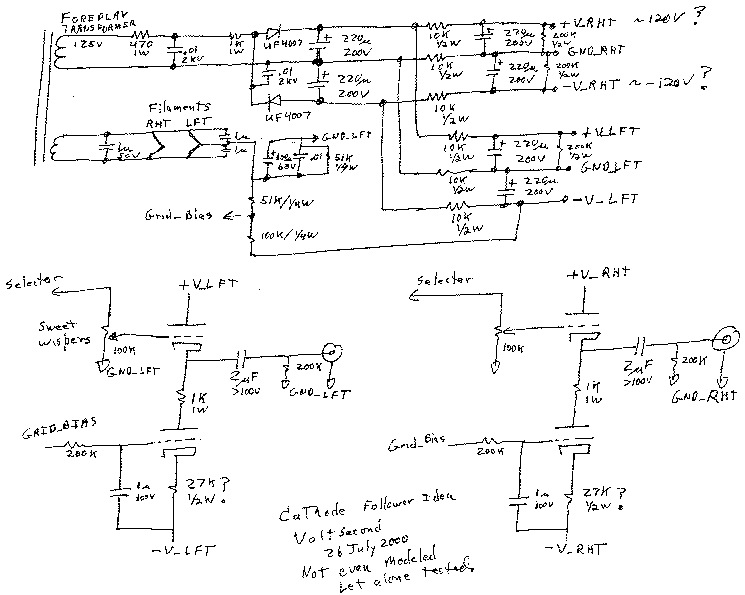 FOREPLAY
TRANSFORMER
125V
470
1W
.01
2KV
1K
1W
UF4007
220u
200V
10K
1/2W
220u
200V
200K
1/2W
+V_RHT ~120V ?
GND_RHT
.01
2KV
220u
200V
10K
1/2W
220u
200V
200K
1/2W
-V_RHT ~-120V ?
UF4007
10K
1/2W
Filaments
RHT LFT
1u
50V
1u
1u
GND_LFT
63V
.01
51K
1/4W
10K
1/2W
220u
200V
200K
1/2W
+V_LFT
10K
1/2W
GND_LFT
220u
200V
10K
1/2W
-V_LFT
51K/1/4W
Grid_Bias
100K/1/4W
Selector
Sweet
Wispers
100K
GND_LFT
+V_LFT
2uF
>100V
200K
GND_LFT
1K
1W
GRID_BIAS
200K
1u
100V
27K ?
1/2W
-V_LFT
Selector
100K
+V_RHT
2uF
>100V
200K
GND_RHT
1K
1W
Grid_Bias
200K
1u
100V
27K ?
1/2W
-V_RHT
Cathode Follower Idea
VoltSecond
26 July 2000
Not even modeled
Let alone tested.